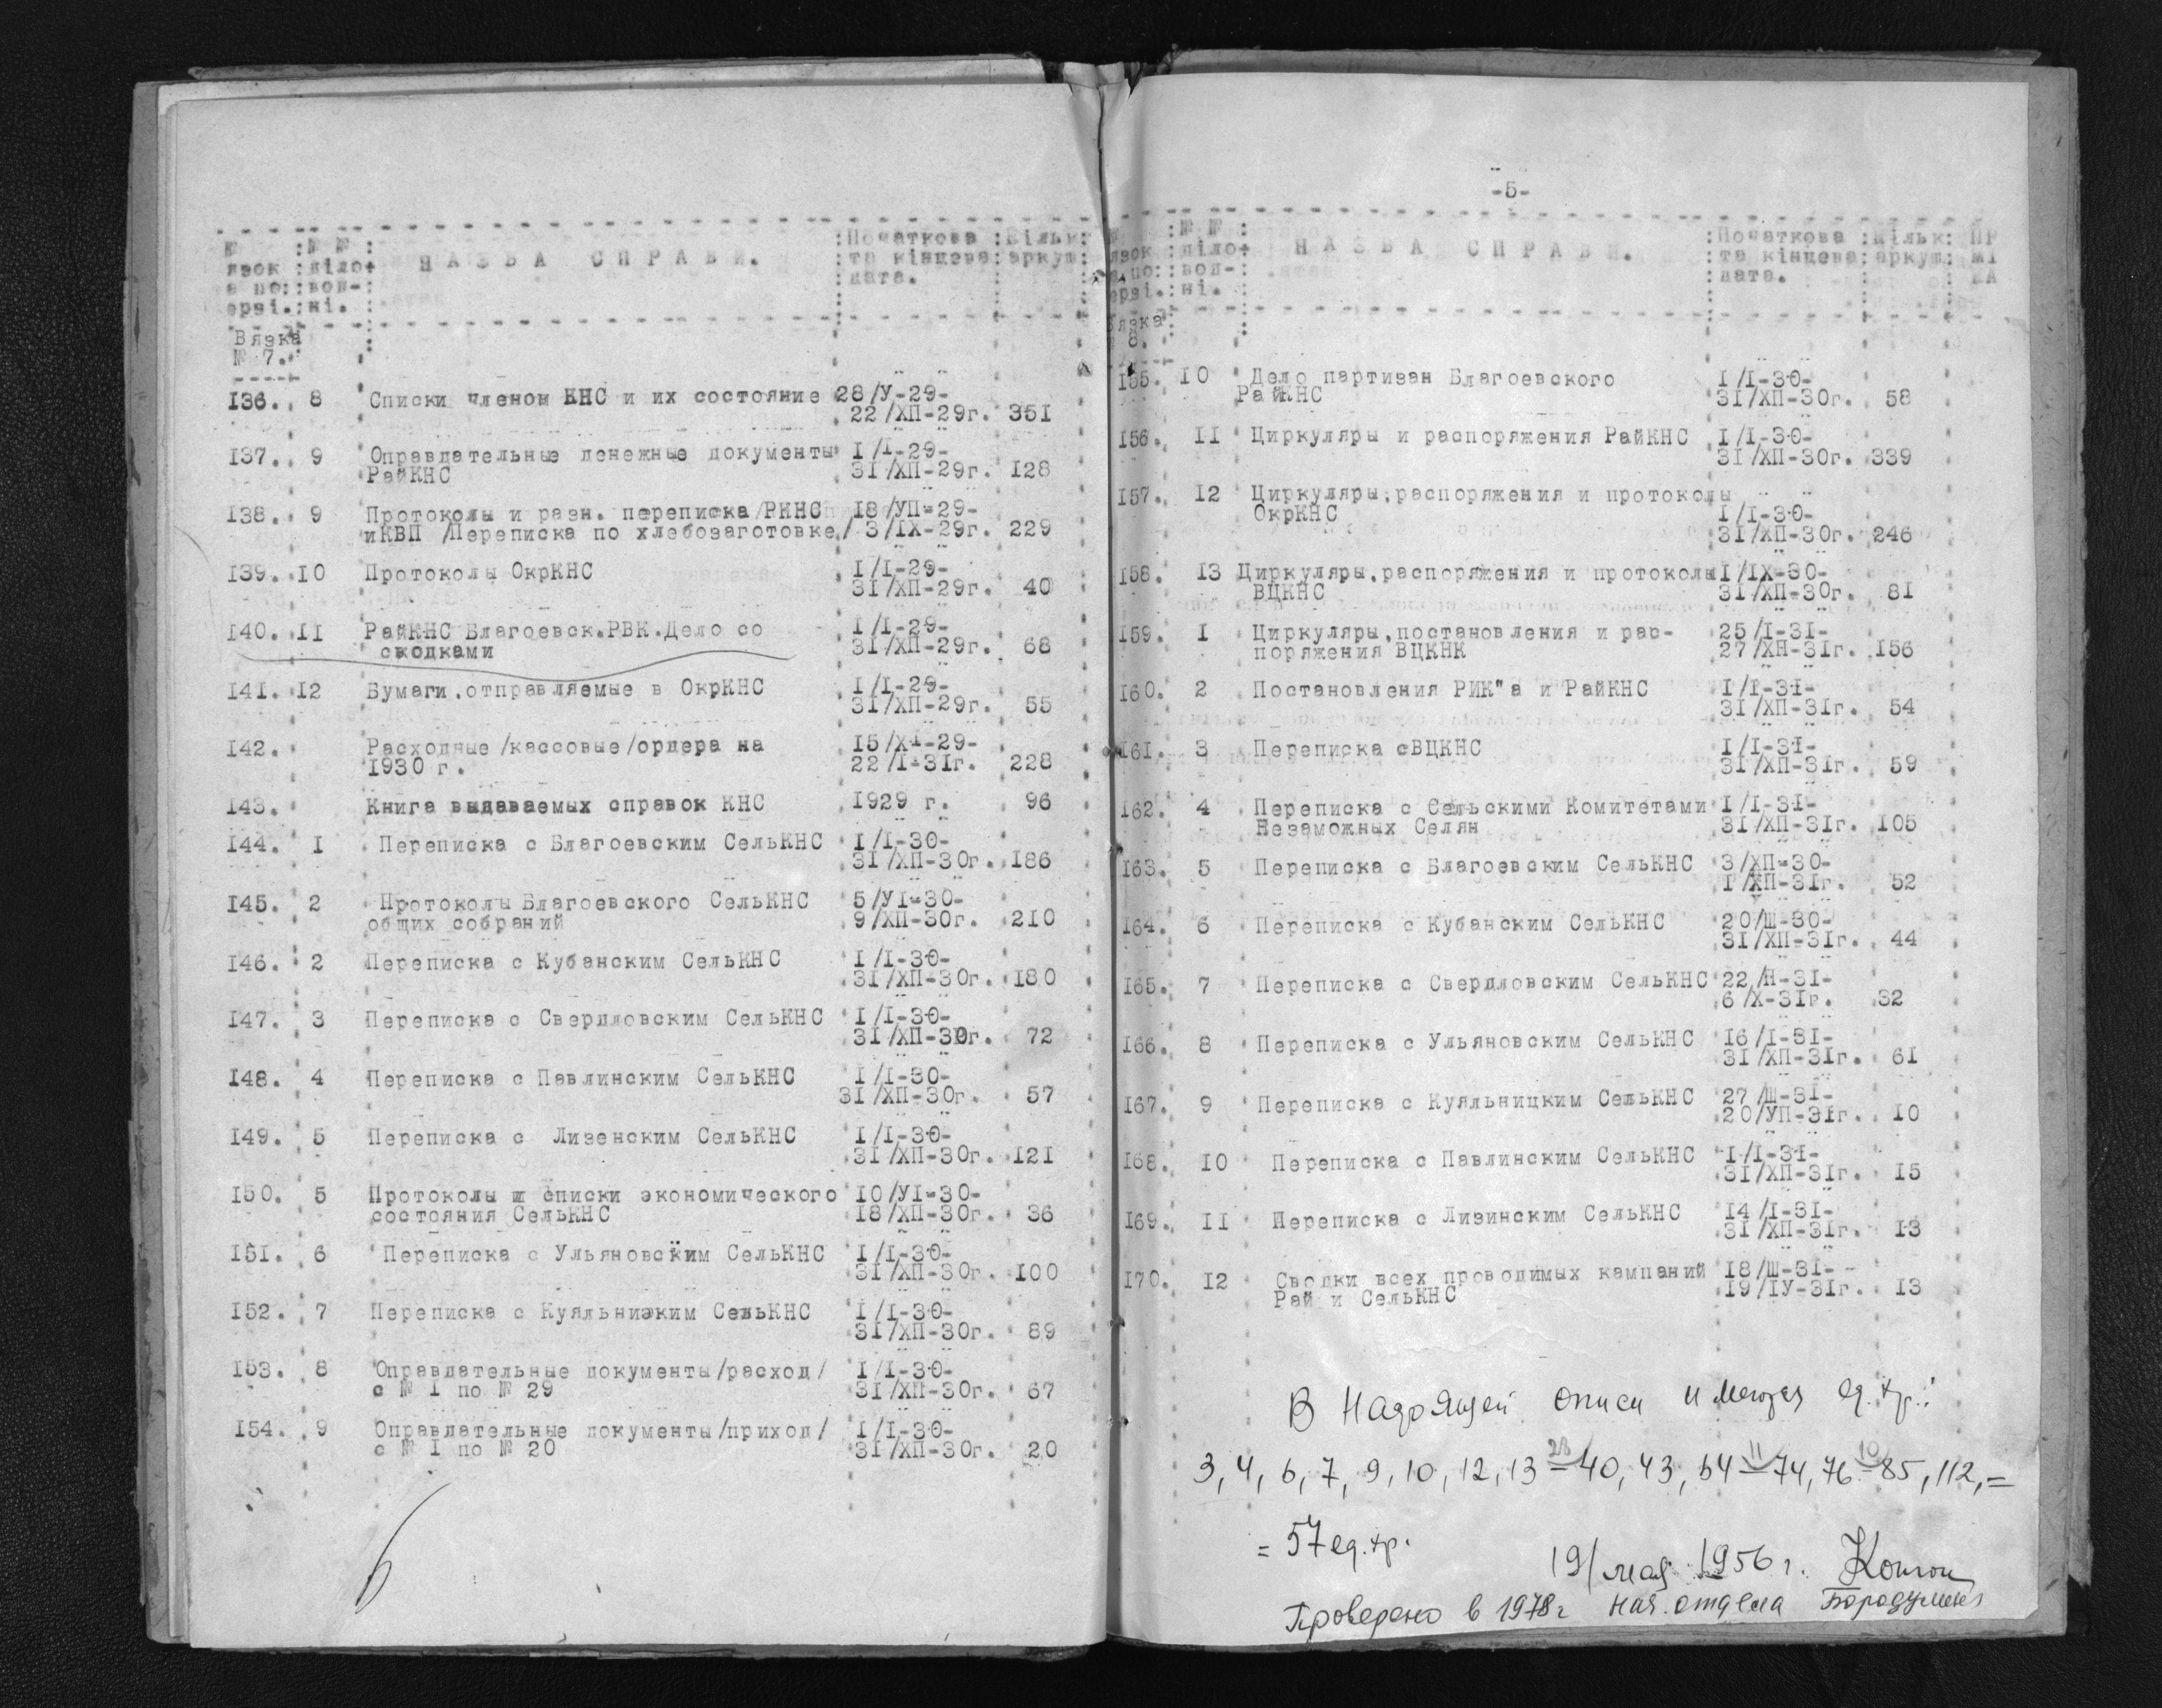 № :№ № : : Початкова : Кільк:
язок : діло: НАЗВА СПРАВИ. : та кінцева: аркуш:
а по: : вод-: : дата. :
ерві.: ні. :
Вязка
№ 7.
136. 8 Списки членом КНС и их состояние 28/У-29-
22/ХП-29г. 351
137. 9 Оправдательные денежные документы I/I-29-
РайКНС 31/ХП-29г. 128
138. 9 Протоколы и разн. переписка/РКНС 18/УП-29-
иКВП /Переписка по хлебозаготовке/ 3/IХ-29г. 229
139. 10 Протоколы ОкрКНС I/I-29-
31/ХП-29г. 40
140. II РайКНС Благоевск.РВК.Дело со I/I-29-
сводками 31/ХП-29г. 68
141. 12 Бумаги,отправляемые в ОкрКНС I/I-29-
31/ХП-29г. 55
142. Расходные/кассовые/ордера на 15/ХI-29-
1930 г. 22/I-31г. 228
143. Книга выдаваемых справок КНС 1929 г. 96
144. I Переписка с Благоевским СельКНС I/I-30-
31/ХП-30г. 186
145. 2 Протоколы Благоевского СельКНС 5/УI-30-
общих собраний 9/ХП-30г. 210
146. 2 Переписка с Кубанским СельКНС I/I-30-
31/ХП-30г. 180
147. 3 Переписка с Свердловским СельКНС I/I-30-
31/ХП-30г. 72
148. 4 Переписка с Павлинским СельКНС I/I-30-
31/ХП-30г. 57
149. 5 Переписка с Лизенским СельКНС I/I-30-
31/ХП-30г. 121
150. 5 Протоколы и списки экономического 10/УI-30-
состояния СельКНС 18/ХП-30г. 36
151. 6 Переписка с Ульяновским СельКНС I/I-30-
31/ХП-30г. 100
152. 7 Переписка с Куяльниэким СельКНС I/I-30-
31/ХП-30г. 89
153. 8 Оправдательные документы/расход/ I/I-30-
с № I по № 29 31/ХП-30г. 67
154. 9 Оправдательные документы/приход/ I/I-30-
с № I по № 20 31/ХП-30г. 20
-5-
:№ № : : Початкова : Кільк: ПР
язок : діло: НАЗВА СПРАВИ. : та кінцева: аркуш: МІ
а по: : вод-: : дата. : КА
ерві.: ні. :
Вязка
8.
155. 10 Дело партизан Благоевского I/I-30-
РайКНС 31/ХП-30г. 58
156. II Циркуляры и распоряжения РайКНС I/I-30-
31/ХП-30г. 339
157. 12 Циркуляры,распоряжения и протоколы
ОкрКНС I/I-30-
31/ХП-30г. 246
158. 13 Циркуляры,распоряжения и протоколы I/IХ-30-
ВЦКНС 31/ХП-30г. 81
159. I Циркуляры,постановления и рас- 25/I-31-
поряжения ВЦКНК 27/ХН-31г. 156
160. 2 Постановления РИК"а и РайКНС I/I-31-
31/ХП-31г. 54
161. 3 Переписка сВЦКНС I/I-31-
31/ХП-31г. 59
162. 4 Переписка с Сельскими Комитетами I/I-31-
Незаможных Селян 31/ХП-31г. 105
163. 5 Переписка с Благоевским СельКНС 3/ХП-30-
I/ХП-31г. 52
164. 6 Переписка с Кубанским СельКНС 20/Ш-30-
31/ХП-31г. 44
165. 7 Переписка с Свердловским СельКНС 22/Н-31-
6/Х-31г. 32
166. 8 Переписка с Ульяновским СельКНС 16/I-31-
31/ХП-31г. 61
167. 9 Переписка с Куяльницким СельКНС 27/Ш-31-
20/УП-31г. 10
168. 10 Переписка с Павлинским СельКНС I/I-31-
31/ХП-31г. 15
169. II Переписка с Лизинским СельКНС 14/I-31-
31/ХП-31г. 13
170. 12 Сводки всех проводимых кампаний 18/Ш-31-
Рай и СельКНС 19/IУ-31г. 13
В настоящей описи имеются ед. хр.:
3, 4, 6, 7, 9, 10, 12, 13 – 40, 43, 54 – 74, 76 – 85, 112, =
28 11 10
= 57 ед. хр.
19/ мая 1956 г.
Проверено в 1978 г нач. отдела